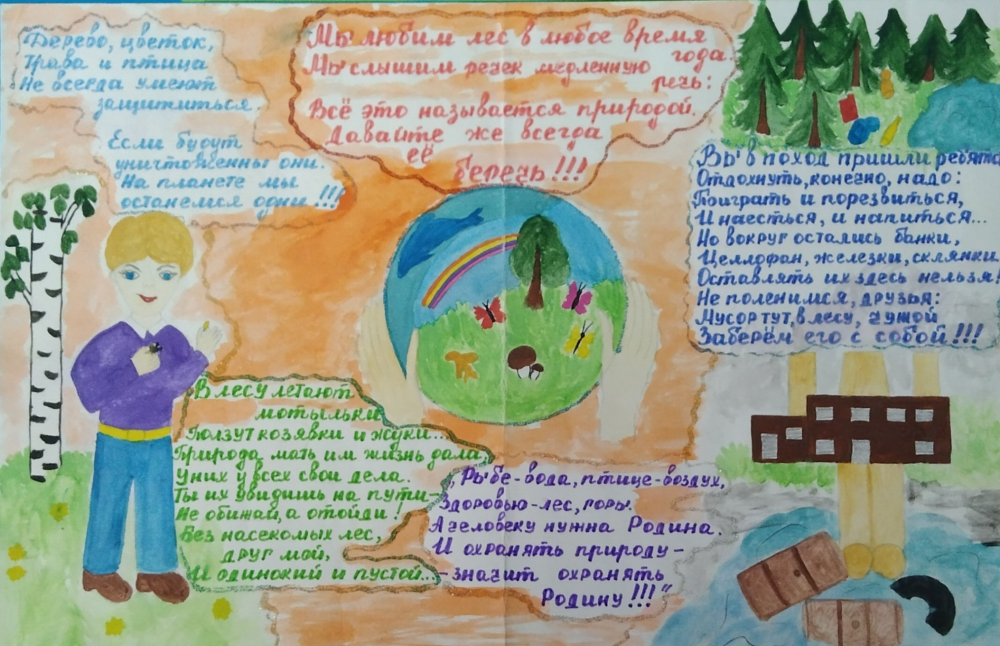 Дерево, цветок,
Трава и птица
Не всегда умеют
защититься.
Если будут
уничтоженны они.
На планете мы
останемся одни!!!
Мы любим лес в любое время
года.
Мы слышим речек медленную
речь:
Всё это называется природой.
Давайте же всегда
её
беречь!!!
Вы в поход пришли ребята
Отдохнуть, конечно, надо:
Поиграть и порезвиться,
И наесться, и напиться...
Но вокруг остались банки,
Целлофан, железки, склянки
Оставлять их здесь нельзя!
Не поленимся, друзья:
Мусор тут, в лесу, чужой
Заберём его с собой!!!
В лесу летают
мотыльки
Ползут козявки и жуки...
Природа мать им жизнь дала,
У них у всех свои дела.
Ты их увидишь на пути-
Не обижай, а отойди!
Без насекомых лес,
друг мой,
И одинокий и пустой...
„Рыбе-вода, птице-воздух,
Здоровью-лес, горы.
А человеку нужна Родина.
И охранять природу-
-значит охранять
Родину!!!"